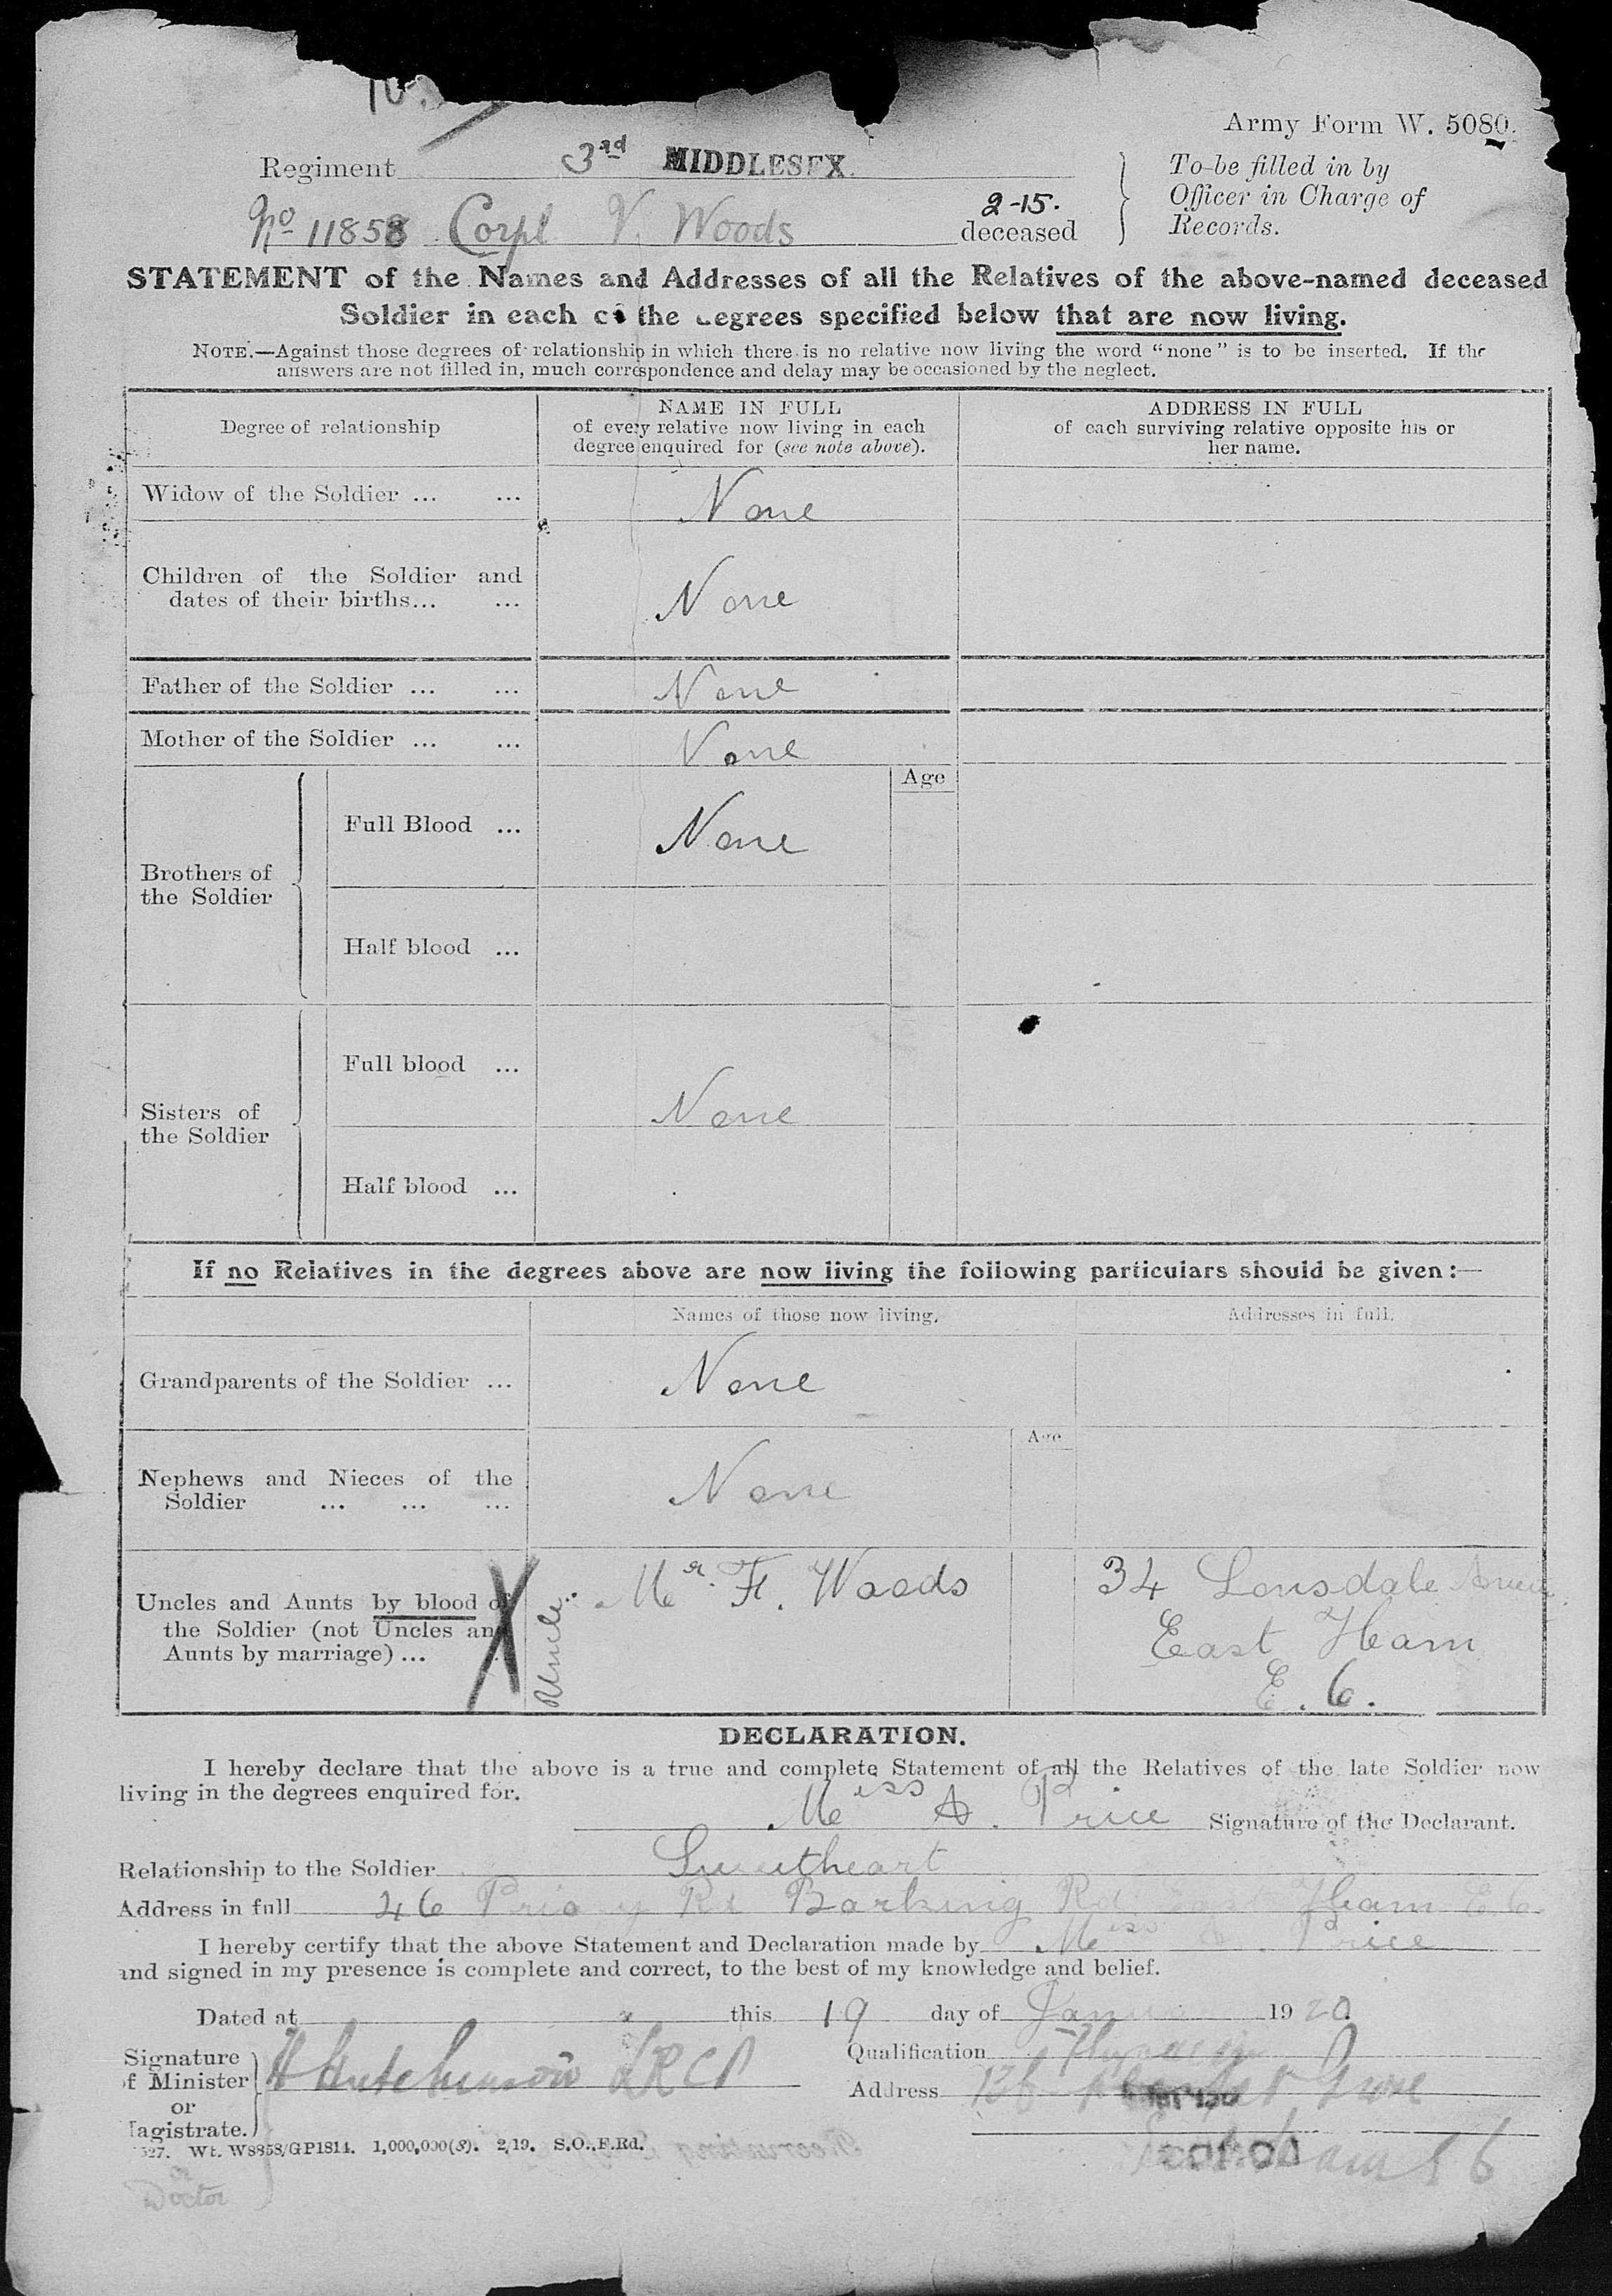 Army Form W. 5080.
Regiment 3rd MIDDLESEX.
To be filled in by
Officer in Charge of
Records.
No 11858 Corpl V. Woods 2-15. deceased
STATEMENT of the Names and Addresses of all the Relatives of the above-named deceased
Soldier in each of the degrees specified below that are now living.
NOTE.—Against those degrees of relationship in which there is no relative now living the word "none" is to be inserted. If the
answers are not filled in, much correspondence and delay may be occasioned by the neglect.
Degree of relationship
NAME IN FULL
of every relative now living in each
degree enquired for (see note above).
ADDRESS IN FULL
of each surviving relative opposite his or
her name.
Widow of the Soldier ... ... None
Children of the Soldier and
dates of their births... ... None
Father of the Soldier ... ... None
Mother of the Soldier ... ... None
Age
Brothers of
the Soldier
Full Blood ... None
Half blood ...
Sisters of
the Soldier
Full blood ...
None
Half blood ...
If no Relatives in the degrees above are now living the following particulars should be given:—
Names of those now living.
Addresses in full.
Grandparents of the Soldier ... None
Age
Nephews and Nieces of the
Soldier ... ... ... None
Uncles and Aunts by blood of
the Soldier (not Uncles and
Aunts by marriage) ...
X
Uncle.
Mr. F. Woods
34 Lonsdale Avenue
East Ham
E. 6.
DECLARATION.
I hereby declare that the above is a true and complete Statement of all the Relatives of the late Soldier now
living in the degrees enquired for.
Miss A. Price Signature of the Declarant.
Relationship to the Soldier Sweetheart
Address in full 46 Priory Rd Barking Rd East Ham E 6
I hereby certify that the above Statement and Declaration made by Miss A. Price
and signed in my presence is complete and correct, to the best of my knowledge and belief.
Dated at this 19 day of January 1920
Signature
of Minister
or
Magistrate.
Hutchinson LRCP
Qualification
Address
Grove
527. Wt. W8858/GP1814. 1,000,000(8). 2/19. S.O.,F.Rd.
or
Doctor